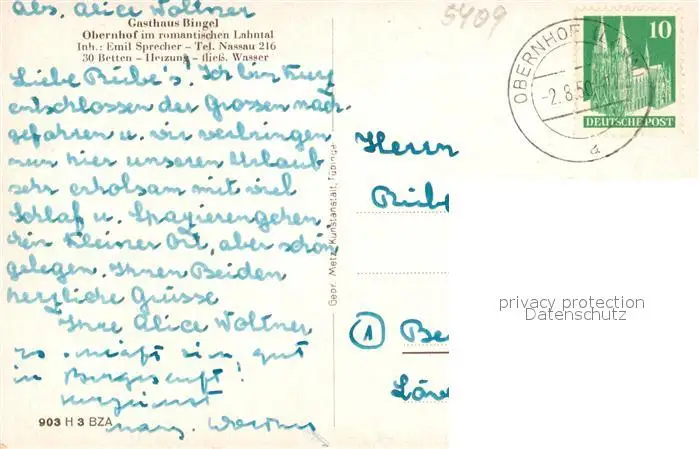 Abs. Alice Woltner
Gasthaus Bingel
Obernhof im romantischen Lahntal
Inh.: Emil Sprecher - Tel. Nassau 216
30 Betten - Heizung - fließ. Wasser
Liebe Rübe's! Ich bin kurz
entschlossen der Grossen nach-
gefahren u. wir verbringen
nun hier unseren Urlaub
sehr erholsam mit viel
Schlaf u. Spazierengehen.
Ein kleiner Ort, aber schön
gelegen. Ihnen Beiden
herzliche Grüsse
Ihre Alice Woltner
gut
in
903 H 3 BZA
Gepr. Metz, Kunstanstalt, Tübingen
5409
OBERNHOF
-2.8.50
a
10
DEUTSCHE POST
Herrn
Rübe
1
Be
Löre
privacy protection
Datenschutz